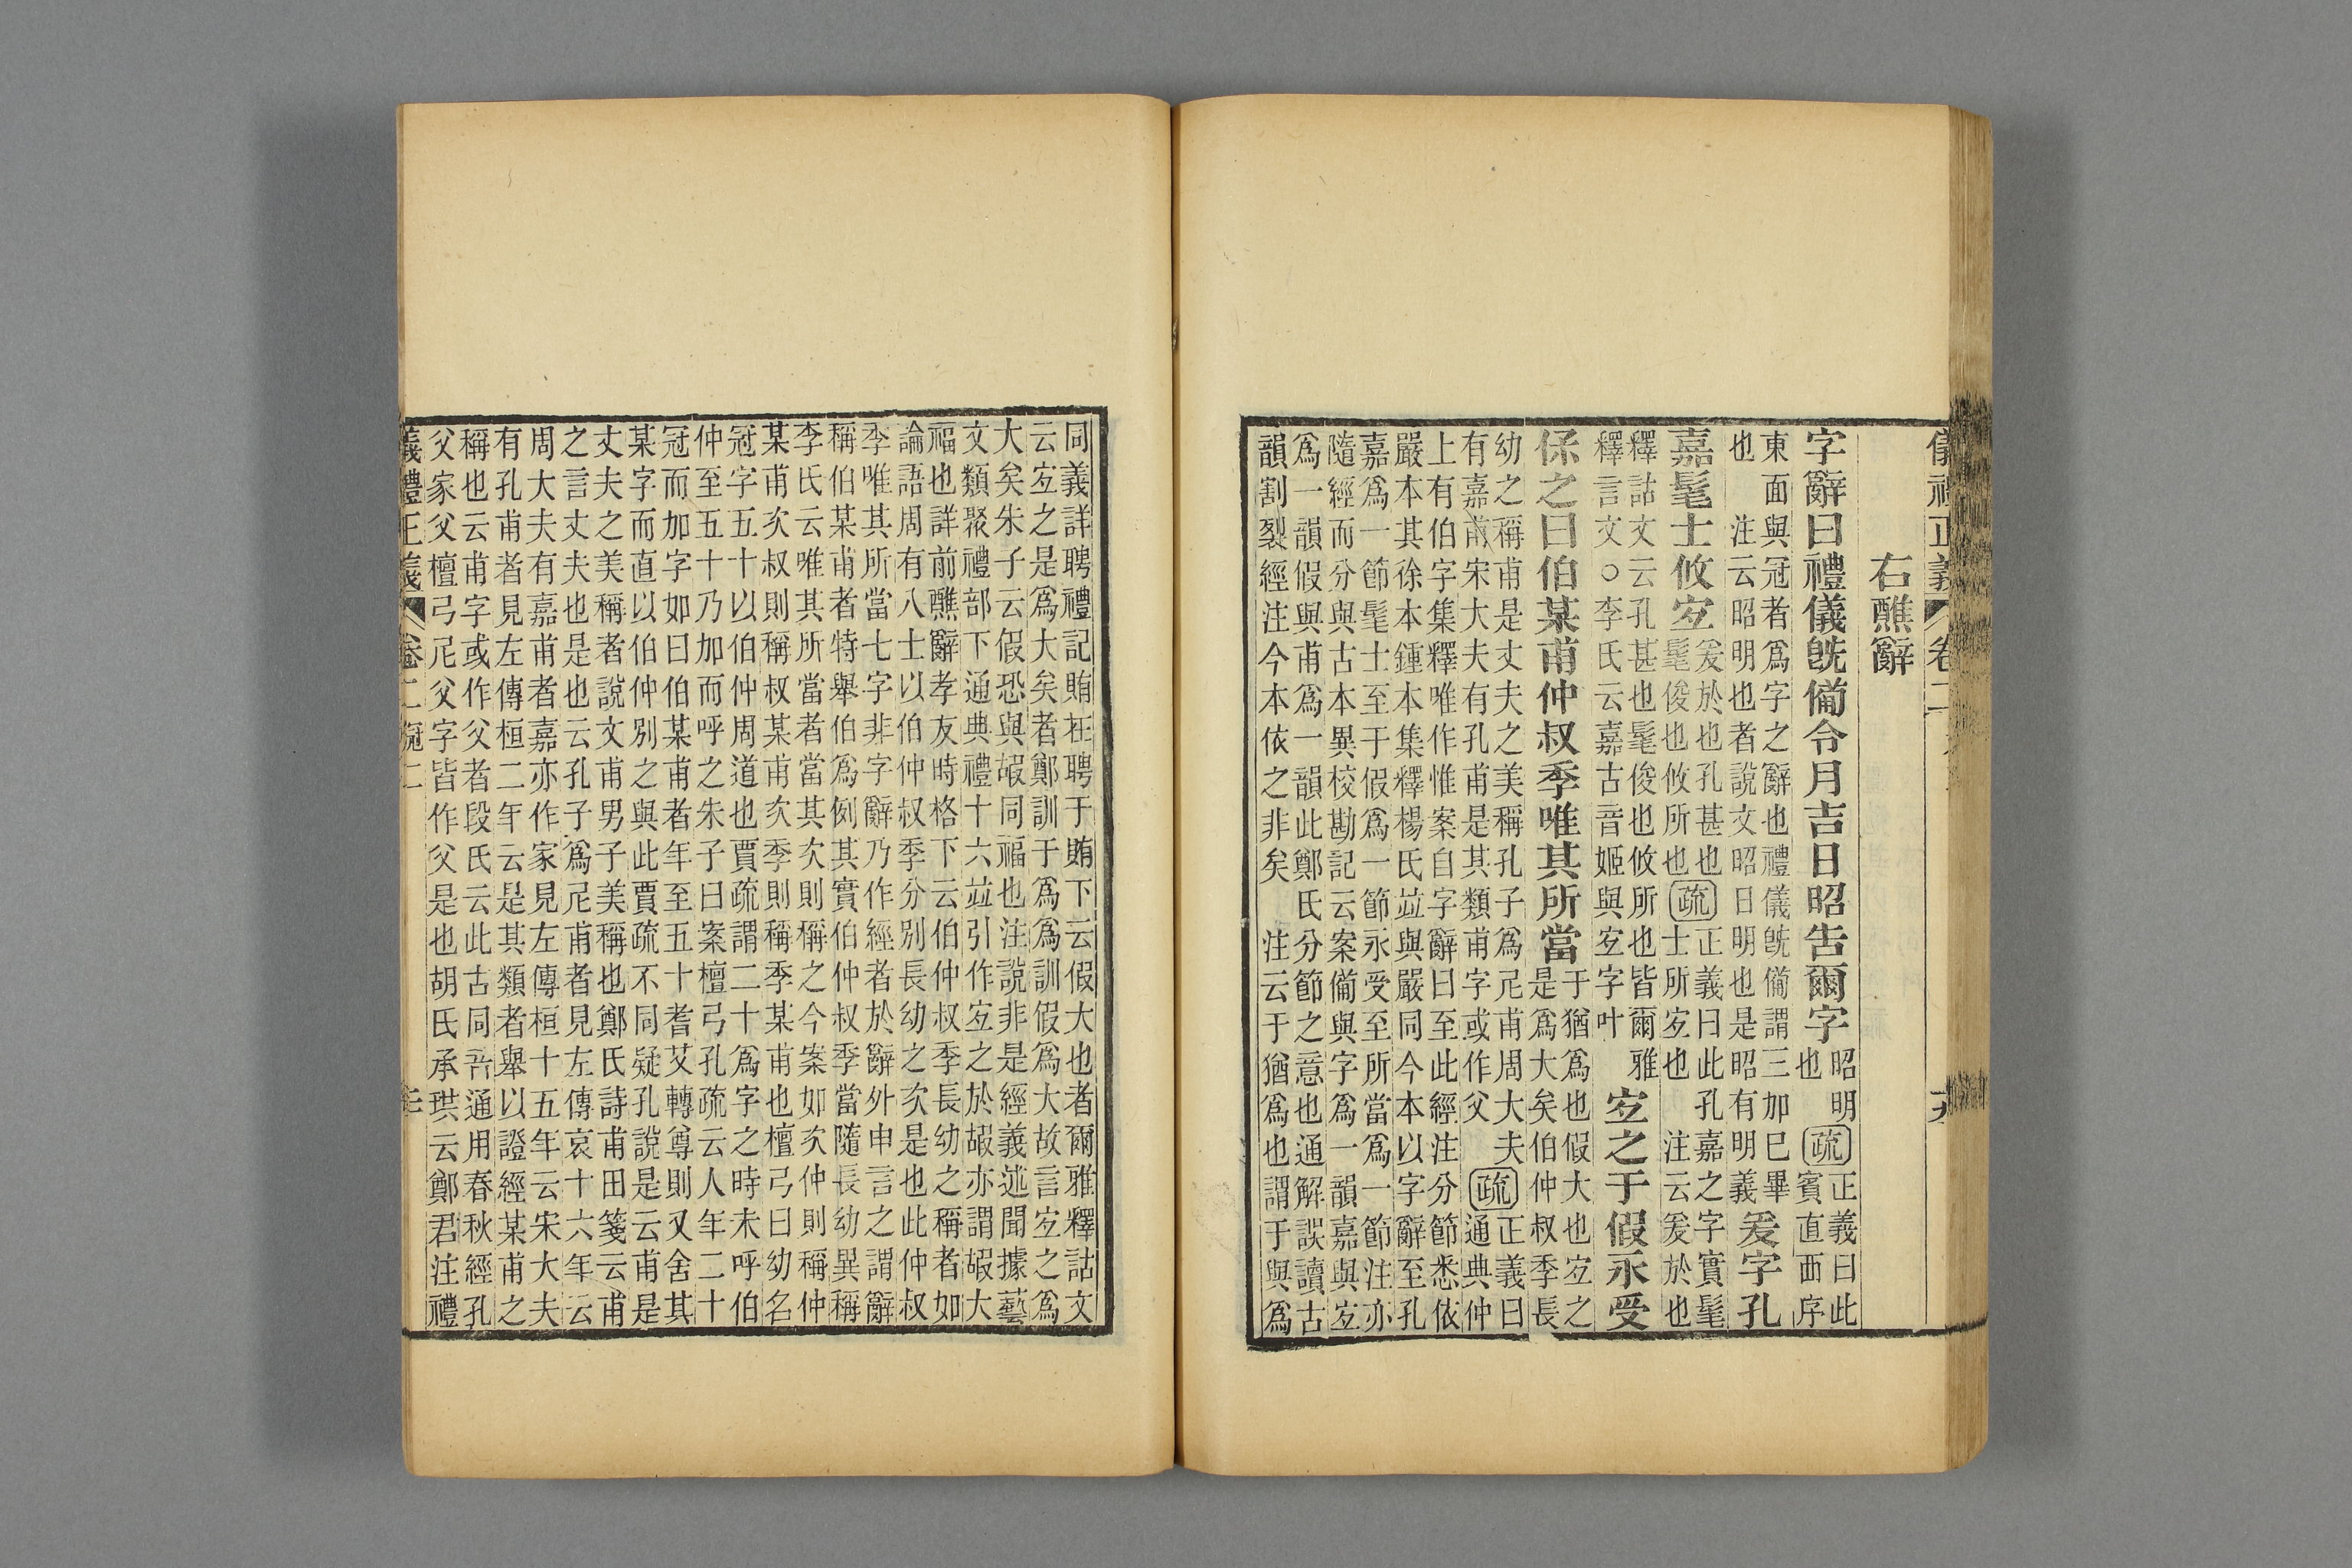 儀禮正義 卷二
右醮辭
字辭曰禮儀旣備令月吉日昭告爾字昭明也疏正義曰此賓直西序
東面與冠者爲字之辭也禮儀旣備謂三加巳畢也 注云昭明也者說文昭日明也是昭有明義爰字孔
嘉髦士攸宐爰於也孔甚也髦俊也攸所也疏正義曰此孔嘉之字實髦士所宐也 注云爰於也
釋詁文云孔甚也髦俊也攸所也皆爾雅釋言文○李氏云嘉古音姬與宐字叶宐之于假永受
保之曰伯某甫仲叔季唯其所當于猶爲也假大也宐之是爲大矣伯仲叔季長
幼之稱甫是丈夫之美稱孔子爲尼甫周大夫有嘉甫宋大夫有孔甫是其類甫字或作父疏正義曰通典仲
上有伯字集釋唯作惟案自字辭曰至此經注分節悉依
嚴本其徐本鍾本集釋楊氏竝與嚴同今本以字辭至孔
嘉爲一節髦士至于假爲一節永受至所當爲一節注亦
隨經而分與古本異校勘記云案備與字爲一韻嘉與宐
爲一韻假與甫爲一韻此鄭氏分節之意也通解誤讀古
韻割裂經注今本依之非矣 注云于猶爲也謂于與爲
同義詳聘禮記賄在聘于賄下云假大也者爾雅釋詁文
云宐之是爲大矣者鄭訓于爲爲訓假爲大故言宐之爲
大矣朱子云假恐與嘏同福也注說非是經義述聞據藝
文類聚禮部下通典禮十六竝引作宐之於嘏亦謂嘏大
福也詳前醮辭孝友時格下云伯仲叔季長幼之稱者如
論語周有八士以伯仲叔季分別長幼之次是也此仲叔
季唯其所當七字非字辭乃作經者於辭外申言之謂辭
稱伯某甫者特舉伯爲例其實伯仲叔季當隨長幼異稱
李氏云唯其所當者當其次則稱之今案如次仲則稱仲
某甫次叔則稱叔某甫次季則稱季某甫也檀弓曰幼名
冠字五十以伯仲周道也賈疏謂二十爲字之時未呼伯
仲至五十乃加而呼之朱子曰案檀弓孔疏云人年二十
冠而加字如曰伯某甫者年至五十耆艾轉尊則又舍其
某字而直以伯仲別之與此賈疏不同疑孔說是云甫是
丈夫之美稱者說文甫男子美稱也鄭氏詩甫田箋云甫
之言丈夫也是也云孔子爲尼甫者見左傳哀十六年云
周大夫有嘉甫者嘉亦作家見左傳桓十五年云宋大夫
有孔甫者見左傳桓二年云是其類者舉以證經某甫之
稱也云甫字或作父者段氏云此古同音通用春秋經孔
父家父檀弓尼父字皆作父是也胡氏承珙云鄭君注禮
儀禮正義 卷二冠二